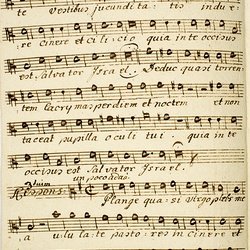 te vestibus jucundita - tis indue -
re cinere et cilicio quia in te occisus
est Salvator Israel. Deduc quasi torren
tem lacrymas per diem et noctem et non
taceat pupilla oculi tui. quia in te
occisus est Salvator Israel.
un poco adag.
Respons: Plange qua - si virgo plebs me
a ululate pasto - res in cinere et